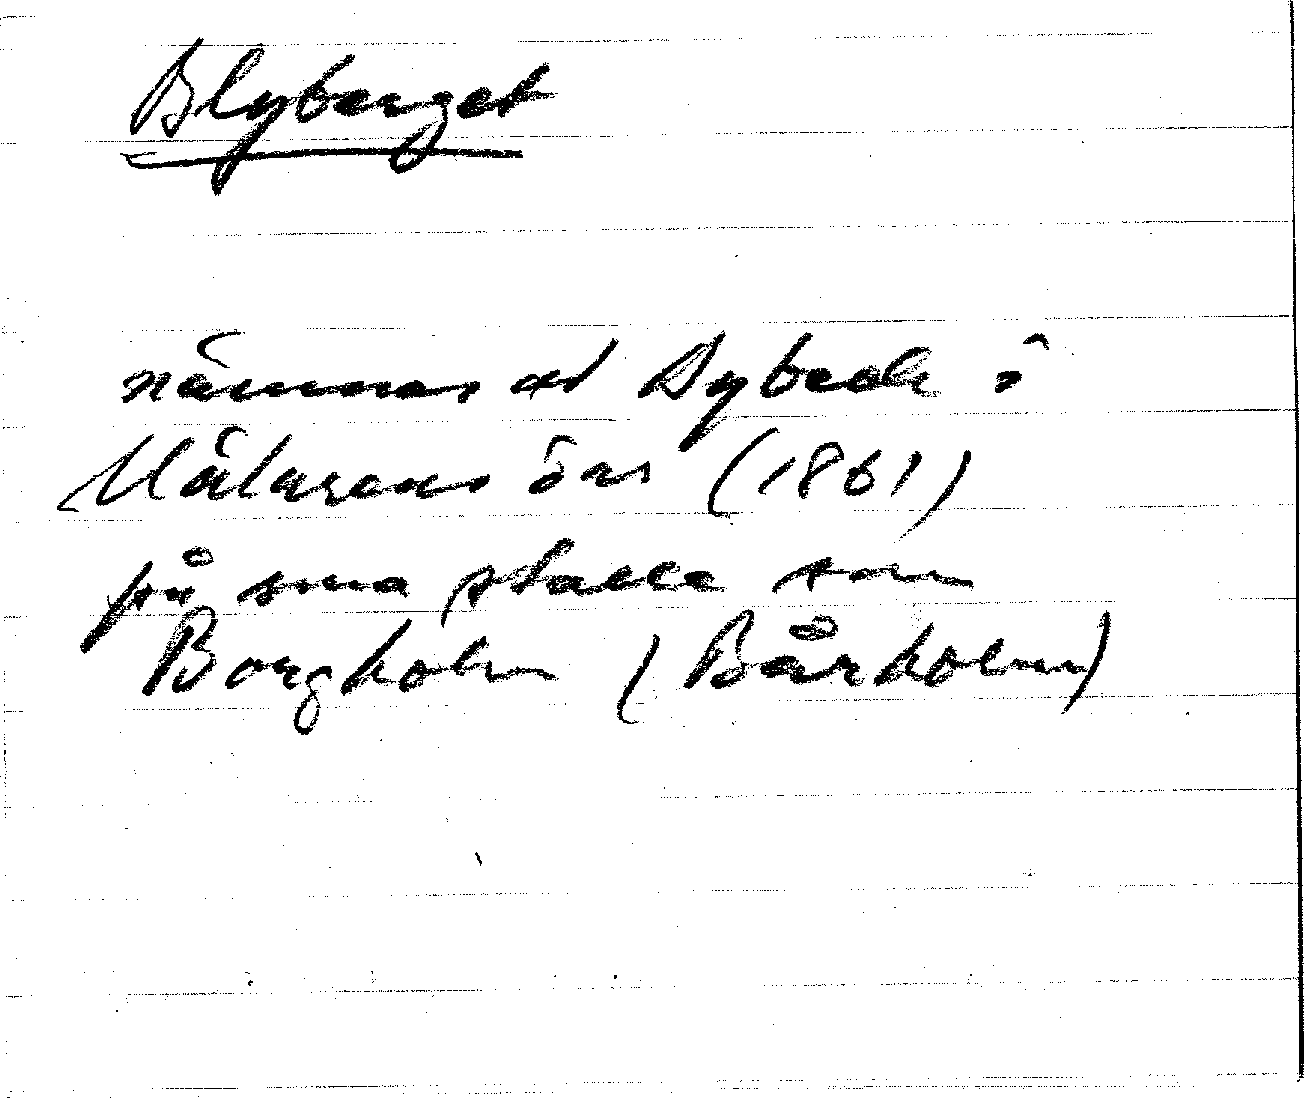 Blyberget
nämnes av Dybeck i
Mälarens öar (1861)
på sma ställe som
Borgholm (Bårholm)